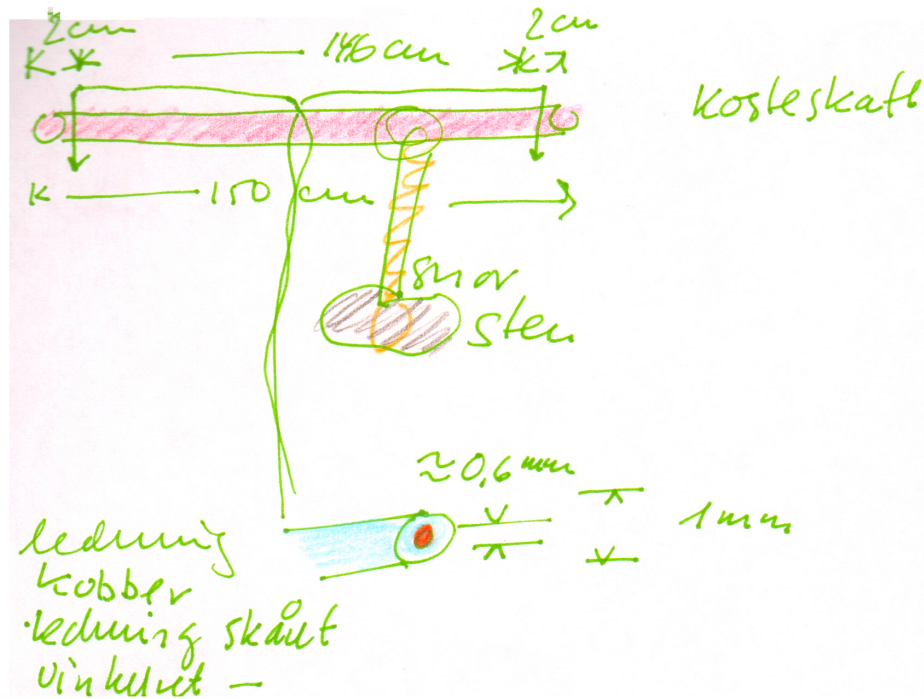 2cm
2cm
146 cm
kosteskaft
150 cm
snor
sten
≈0,6 mm
1mm
ledning
kobber
ledning skåret
vinkelret —